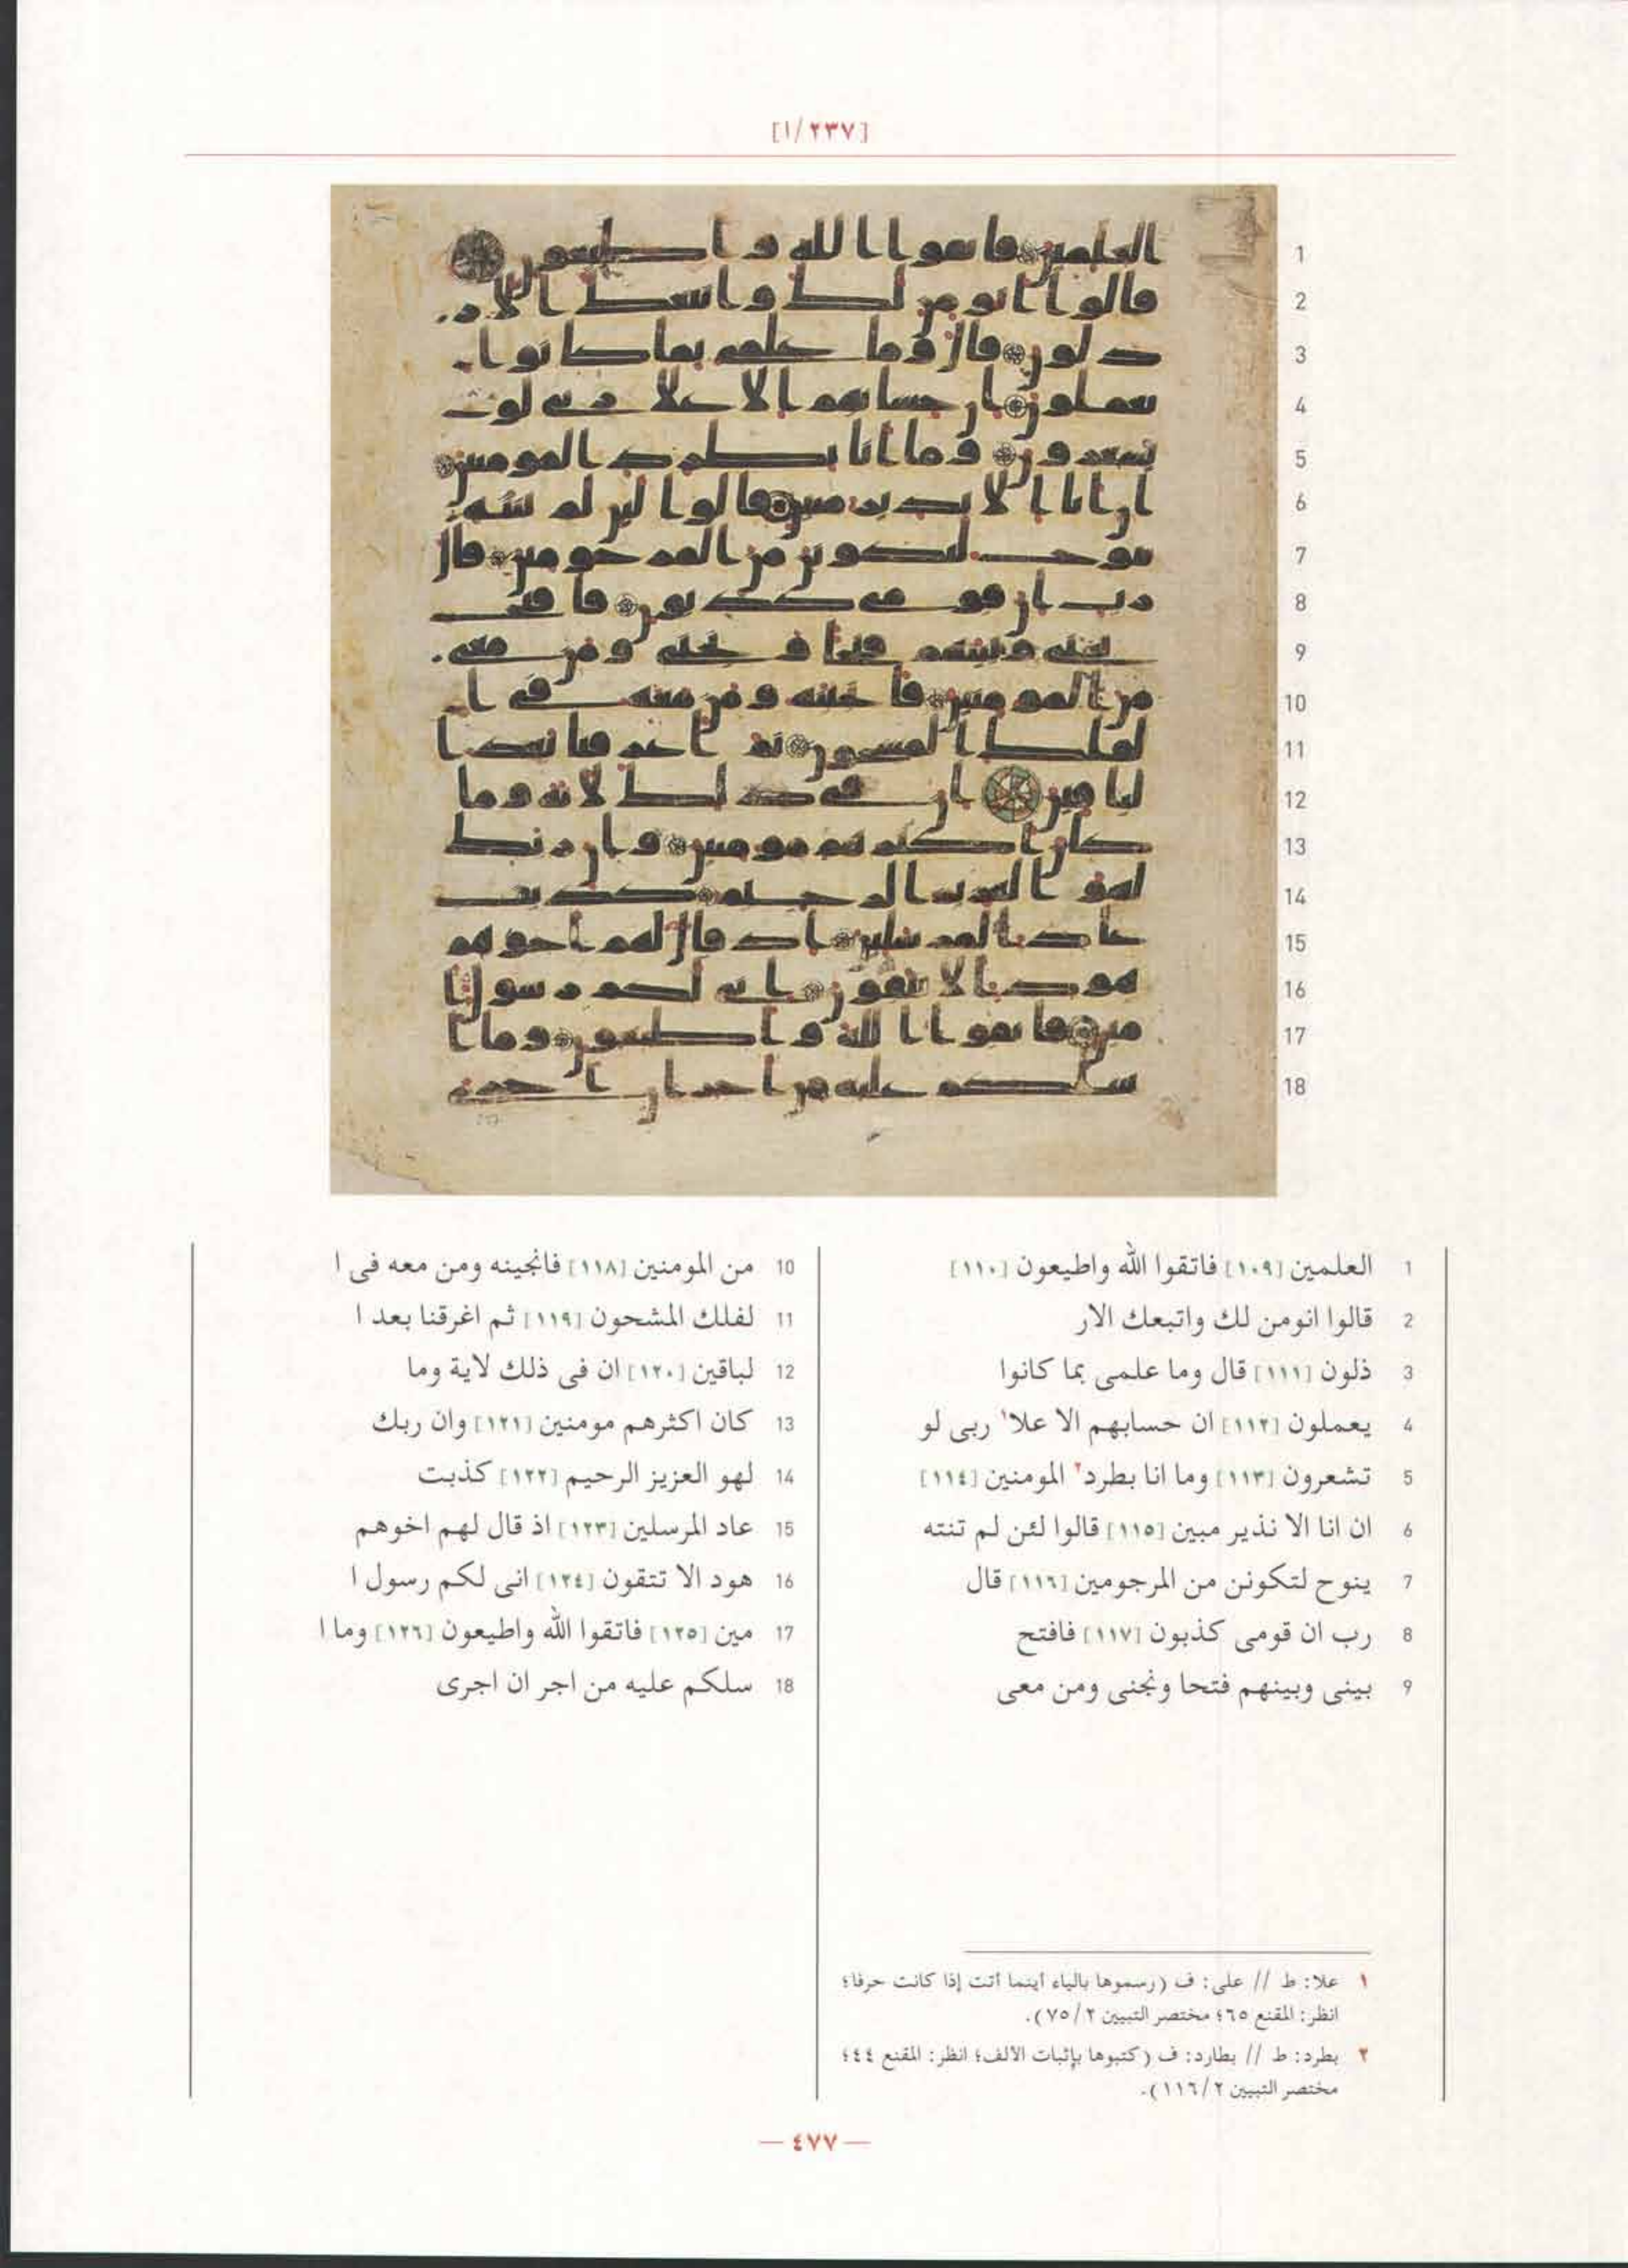 [٢٣٧/١]
1 العلمين [١٠٩] فاتقوا الله واطيعون [١١٠]
2 قالوا انومن لك واتبعك الار
3 ذلون [١١١] قال وما علمى بما كانوا
4 يعملون [١١٢] ان حسابهم الا علا١ ربى لو
5 تشعرون [١١٣] وما انا بطرد٢ المومنين [١١٤]
6 ان انا الا نذير مبين [١١٥] قالوا لئن لم تنته
7 ينوح لتكونن من المرجومين [١١٦] قال
8 رب ان قومى كذبون [١١٧] فافتح
9 بينى وبينهم فتحا ونجنى ومن معى
10 من المومنين [١١٨] فانجينه ومن معه فى ا
11 لفلك المشحون [١١٩] ثم اغرقنا بعد ا
12 لباقين [١٢٠] ان فى ذلك لاية وما
13 كان اكثرهم مومنين [١٢١] وان ربك
14 لهو العزيز الرحيم [١٢٢] كذبت
15 عاد المرسلين [١٢٣] اذ قال لهم اخوهم
16 هود الا تتقون [١٢٤] انى لكم رسول ا
17 مين [١٢٥] فاتقوا الله واطيعون [١٢٦] وما ا
18 سلكم عليه من اجر ان اجرى
١ علا: ط // على: ف (رسموها بالياء أينما أتت إذا كانت حرفا؛
انظر: المقنع ٦٥؛ مختصر التبيين ٧٥/٢).
٢ بطرد: ط // بطارد: ف (كتبوها بإثبات الالف؛ انظر: المقنع ٤٤؛
مختصر التبيين ١١٦/٢).
— ٤٧٧ —